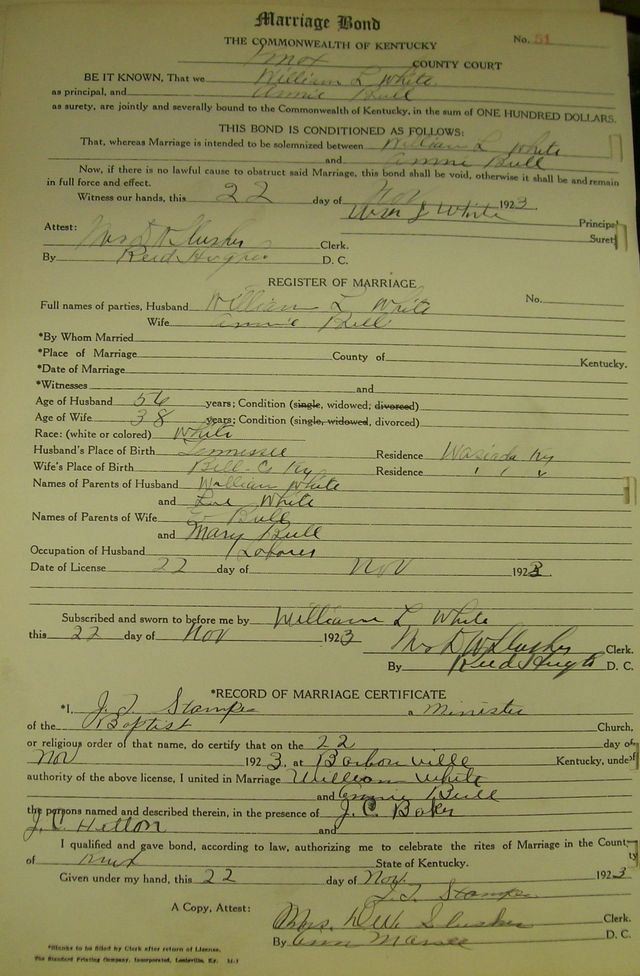 Marriage Bond
THE COMMONWEALTH OF KENTUCKY
No. 51
Knox COUNTY COURT
BE IT KNOWN, That we William L White
as principal, and Annie Bull
as surety, are jointly and severally bound to the Commonwealth of Kentucky, in the sum of ONE HUNDRED DOLLARS.
THIS BOND IS CONDITIONED AS FOLLOWS:
That, whereas Marriage is intended to be solemnized between William L White
and Annie Bull
Now, if there is no lawful cause to obstruct said Marriage, this bond shall be void, otherwise it shall be and remain
in full force and effect.
Witness our hands, this 22 day of Nov 1923
Wm L White Principal
Surety
Attest:
Mrs D W Slusher Clerk.
By Reed D. C.
REGISTER OF MARRIAGE
Full names of parties, Husband William L White No.
Wife Annie Bull
*By Whom Married
*Place of Marriage County of Kentucky.
*Date of Marriage
*Witnesses and
Age of Husband 56 years; Condition (single, widowed, divorced)
Age of Wife 38 years; Condition (single, widowed, divorced)
Race: (white or colored) White
Husband's Place of Birth Tennessee Residence Wasioto Ky
Wife's Place of Birth Bell Co Ky Residence " " "
Names of Parents of Husband William White
and White
Names of Parents of Wife Bull
and Mary Bull
Occupation of Husband Laborer
Date of License 22 day of Nov 1923.
Subscribed and sworn to before me by William L White
this 22 day of Nov 1923
Mrs D W Slusher Clerk.
By Reed D. C.
*RECORD OF MARRIAGE CERTIFICATE
*I, J. T. Stamper a Minister
of the Baptist Church,
or religious order of that name, do certify that on the 22 day of
Nov 1923, at Barbourville Kentucky, under
authority of the above license, I united in Marriage William White
and Annie Bull
the persons named and described therein, in the presence of J. C. Baker
J. C. Helton and
I qualified and gave bond, according to law, authorizing me to celebrate the rites of Marriage in the County
of Knox State of Kentucky.
Given under my hand, this 22 day of Nov. 1923
J. T. Stamper
A Copy, Attest:
Mrs. D. W. Slusher Clerk.
By Ann D. C.
*Blanks to be filled by Clerk after return of License.
The Standard Printing Company, Incorporated, Louisville, Ky.